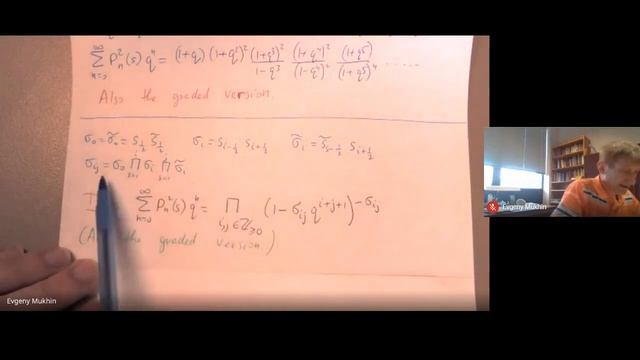 ∑_{n=0}^{∞} P_n^2(s) q^n = (1+q) (1+q^2)^2 (1+q^3)^2/(1-q^3) (1+q^4)^2/(1-q^4)^2 (1+q^5)/(1+q^5)^4 .....
Also the graded version.
σ_0 = σ̃_0 = s_{1/2} s̃_{1/2} σ_i = s_{i-1/2} s_{i+1/2} σ̃_i = s̃_{i-1/2} s_{i+1/2}
σ_{ij} = σ_0 ∏ σ_i ∏ σ̃_i
∑_{n=0}^{∞} P_n^2(s) q^n = ∏_{i,j∈ℤ≥0} (1 - σ_{ij} q^{i+j+1})^{-σ_{ij}}
the graded version)
Evgeny Mukhin
Evgeny Mukhin